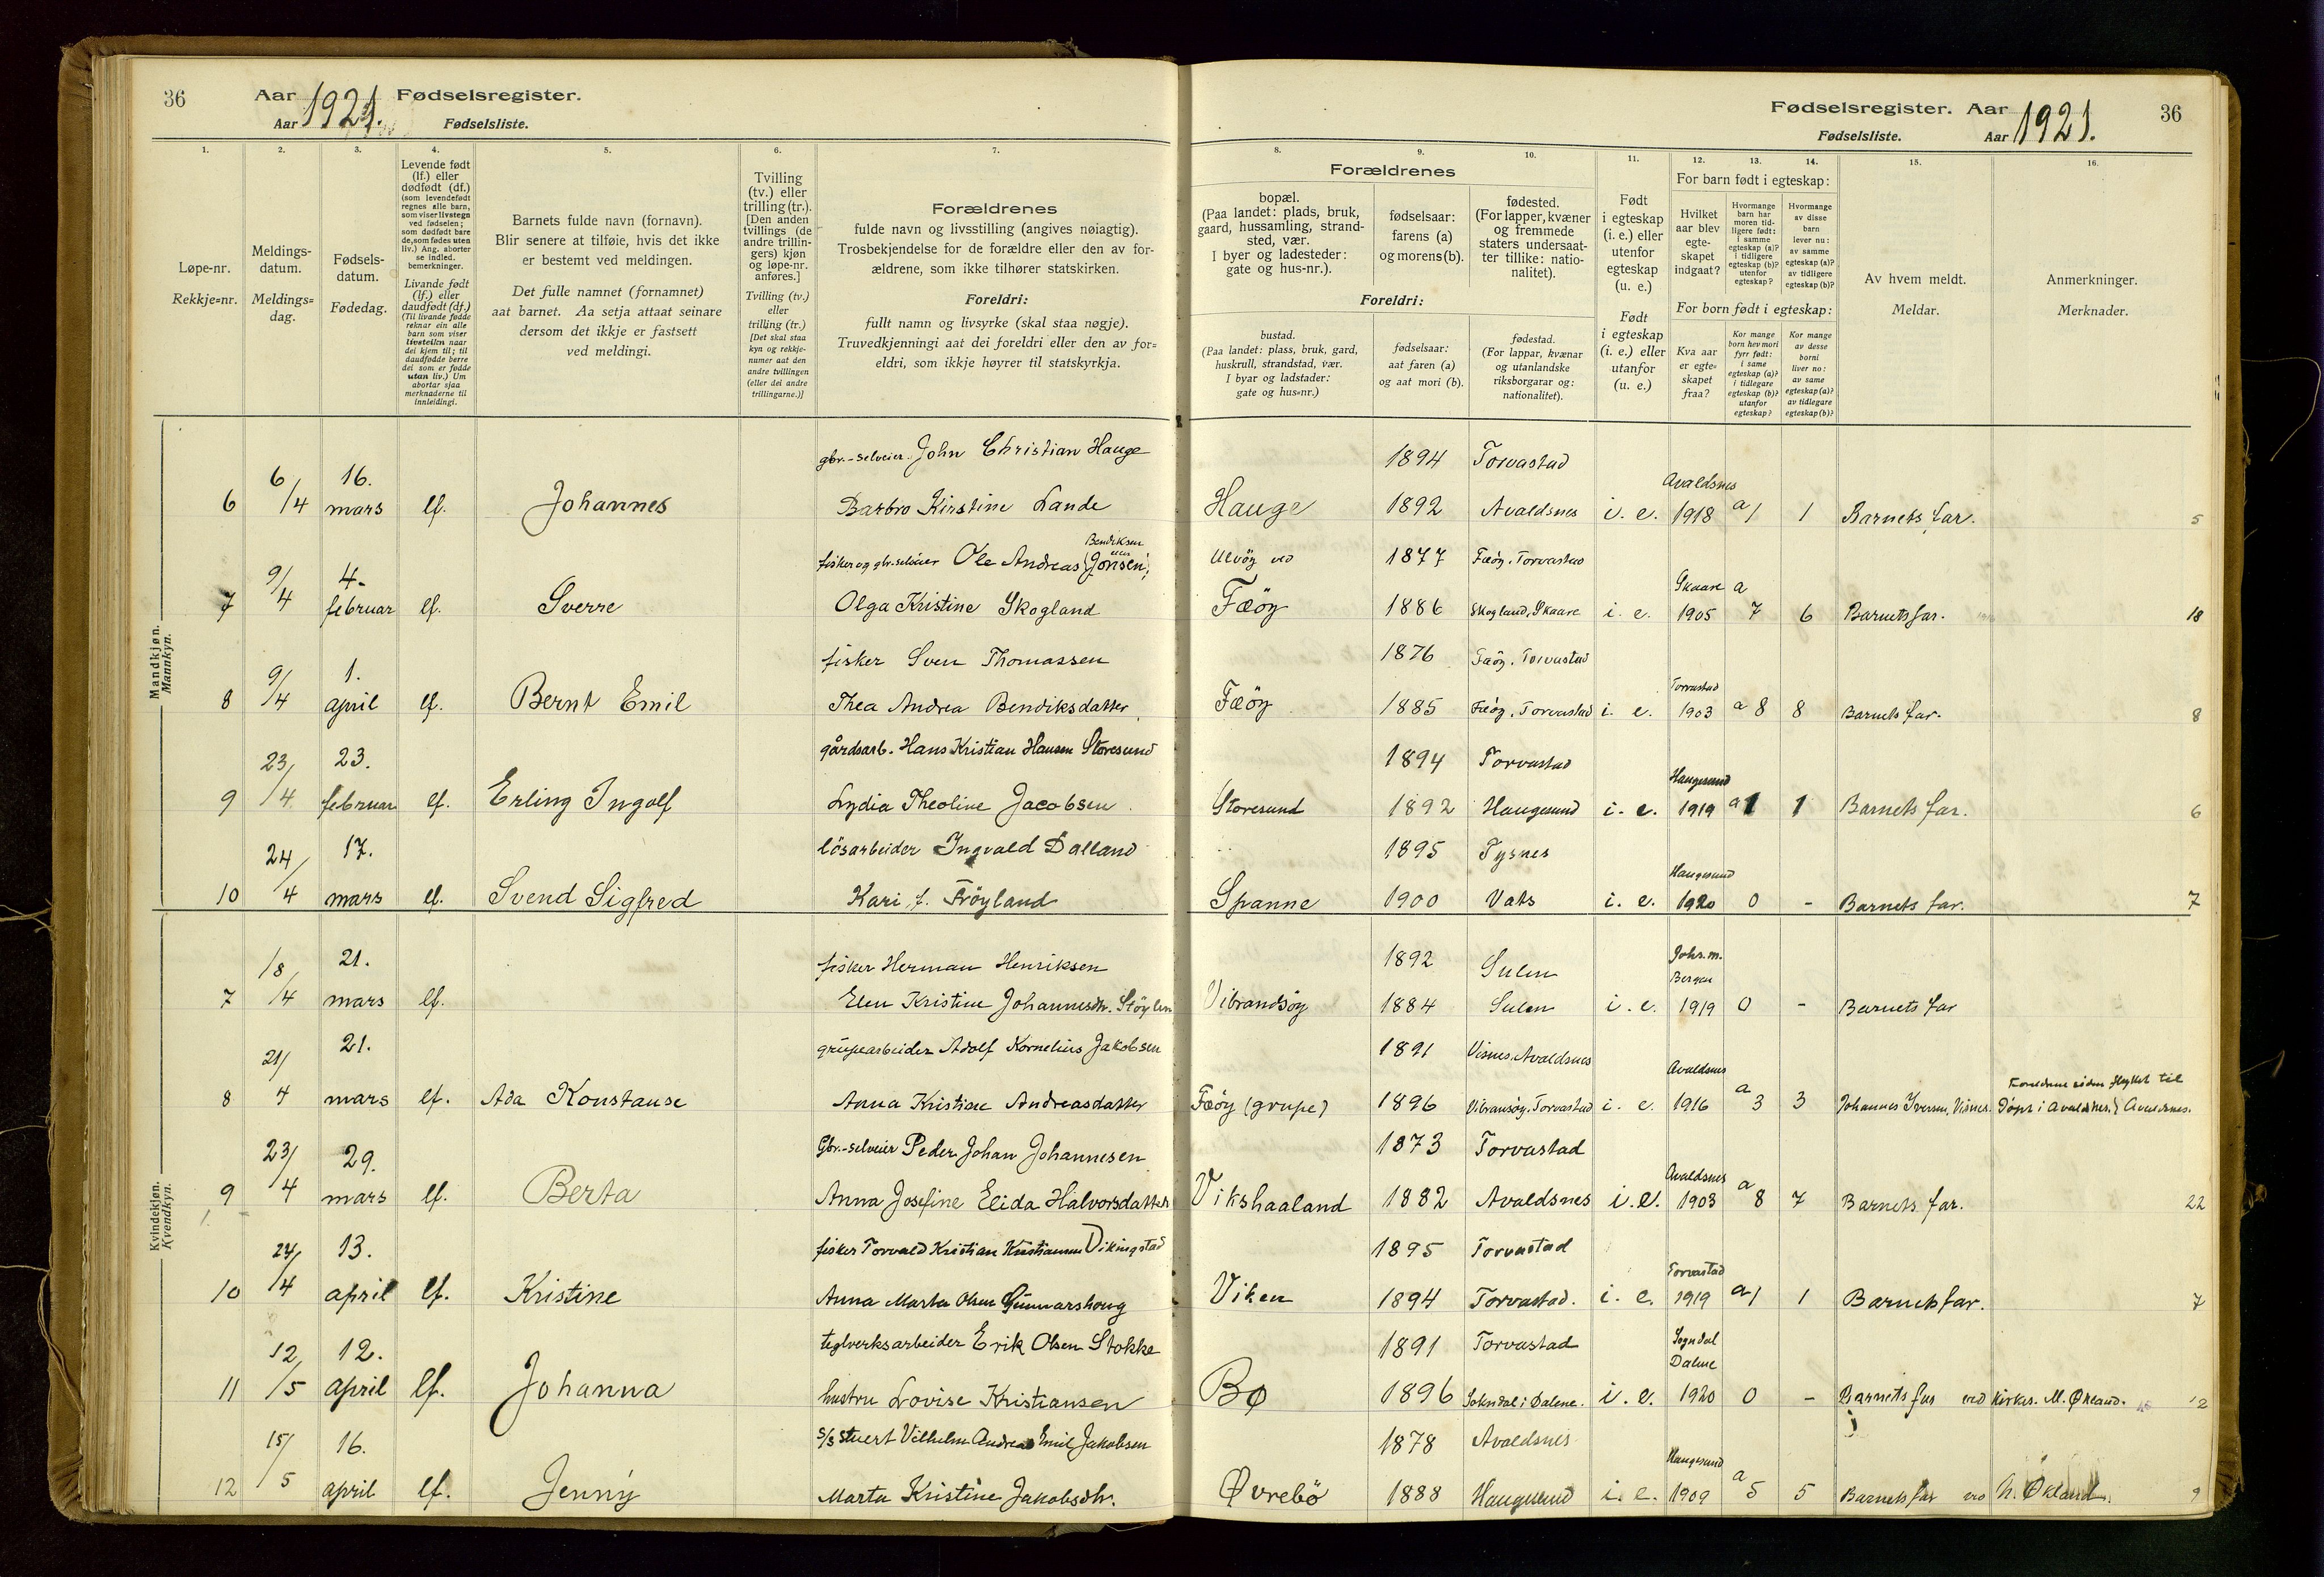 36 Aar 1921. Fødselsregister.
Aar Fødselsliste.
Fødselsregister. Aar 1921. 36
Fødselsliste. Aar
1. 2. 3. 4. 5. 6. 7.
Løpe-nr.
Rekkje=nr.
Meldings-
datum.
Meldings=
dag.
Fødsels-
datum.
Fødedag.
Levende født
(lf.) eller
dødfødt (df.)
(som levendefødt
regnes alle barn,
som viser livstegn
ved fødselen;
som dødfødt bare
de, som fødes uten
liv.) Ang. aborter
se indled.
bemerkninger.
Livande født
(lf.) eller
daudfødt (df.)
(Til livande fødde
reknar ein alle
barn som viser
livsteikn naar
dei kjem til; til
daudfødde berre
dei som er fødde
utan liv.) Um
abortar sjaa
merknaderne til
innleidingi.
Barnets fulde navn (fornavn).
Blir senere at tilføie, hvis det ikke
er bestemt ved meldingen.
Det fulle namnet (fornamnet)
aat barnet. Aa setja attaat seinare
dersom det ikkje er fastsett
ved meldingi.
Tvilling
(tv.) eller
trilling (tr.).
[Den anden
tvillings (de
andre trillin-
gers) kjøn
og løpe-nr.
anføres.]
Tvilling (tv.)
eller
trilling (tr.)
[Det skal staa
kyn og rekkje-
numer aat den
andre tvillingen
(eller dei andre
trillingarne.)]
Forældrenes
fulde navn og livsstilling (angives nøiagtig).
Trosbekjendelse for de forældre eller den av for-
ældrene, som ikke tilhører statskirken.
Foreldri:
fullt namn og livsyrke (skal staa nøgje).
Truvedkjenningi aat dei foreldri eller den av for=
eldri, som ikkje høyrer til statskyrkja.
8. 9. 10. 11. 12. 13. 14. 15. 16.
Forældrenes
bopæl.
(Paa landet: plads, bruk,
gaard, hussamling, strand-
sted, vær.
I byer og ladesteder:
gate og hus-nr.).
fødselsaar:
farens (a)
og morens (b).
fødested.
(For lapper, kvæner
og fremmede
staters undersaat-
ter tillike: natio-
nalitet).
Foreldri:
bustad.
(Paa landet: plass, bruk, gard,
huskrull, strandstad, vær.
I byar og ladstader:
gate og hus=nr.)
fødselsaar:
aat faren (a)
og aat mori (b).
fødestad.
(For lappar, kvænar
og utanlandske
riksborgarar og:
nationalitet).
Født
i egteskap
(i. e.) eller
utenfor
egteskap
(u. e.)
Født
i egteskap
(i. e.) eller
utanfor
(u. e.)
For barn født i egteskap:
Hvilket
aar blev
egte-
skapet
indgaat?
Hvormange
barn har
moren tid-
ligere født:
i samme
egteskap (a)?
i tidligere
egteskap (b)?
utenfor
egteskap?
Hvormange
av disse
barn
lever nu:
av samme
egteskap (a)?
av tidligere
egteskap (b)?
For born født i egteskap:
Kva aar
er egte=
skapet
fraa?
Kor mange
born hev mori
fyrr født:
i same
egteskap (a)?
i tidlegare
egteskap (b)?
utanfor
egteskap?
Kor mange
av desse
borni
liver no:
av same
egteskap (a)?
av tidlegare
egteskap (b)?
Av hvem meldt.
Meldar.
Anmerkninger.
Merknader.
Mandkjøn.
Mannkyn.
gbr.-selveier. John Christian Hauge 1894 Torvastad
6 6/4 16. mars lf. Johannes Barbro Kirstine Lande Hauge 1892 Avaldsnes i. e. Avaldsnes 1918 a 1 1 Barnets far. 5
fisker og gbr. selveier Ole Andreas Bendiksen (Jonsen) Ulvöy ved 1877 Fæöy, Torvastad
7 9/4 4. februar lf. Sverre Olga Kristine Skogland Fæöy 1886 Skogland, Skaare i. e. Skaare 1905 a 7 6 Barnets far. 18
fisker Sven Thomassen 1876 Fæöy, Torvastad
8 9/4 1. april lf. Bernt Emil Thea Andrea Bendiksdatter Fæöy 1885 Fæöy, Torvastad i. e. Torvastad 1903 a 8 8 Barnets far. 8
gårdsarb. Hans Kristian Hansen Storesund 1894 Torvastad
9 23/4 23. februar lf. Erling Ingolf Lydia Theoline Jacobsen Storesund 1892 Haugesund i. e. Haugesund 1919 a 1 1 Barnets far. 6
lösarbeider Ingvald Dalland 1895 Tysnes
10 24/4 17. mars lf. Svend Sigfred Kari f. Fröyland Spanne 1900 Vats i. e. Haugesund 1920 0 - Barnets far. 7
Kvindekjøn.
Kvendkyn.
fisker Herman Henriksen 1892 Sulen
7 18/4 21. mars lf. Elen Kristine Johannesdtr. Stöylen Vibrandsöy 1884 Sulen i. e. Johs.m. Bergen 1919 0 - Barnets far
grubearbeider Adolf Kornelius Jakobsen 1891 Visnes, Avaldsnes
8 21/4 21. mars lf. Ada Konstanse Anna Kristine Andreasdatter Fæöy (grupe) 1896 Vibransöy, Torvastad i. e. Avaldsnes 1916 a 3 3 Johannes Iversen, Visnes. Foreldrene siden flyttet til Avaldsnes. Döpt i Avaldsnes.
Gbr.-selveier Peder Johan Johannesen 1873 Torvastad
9 23/4 29. mars lf. Berta Anna Josefine Elida Halvorsdatter Vikshaaland 1882 Avaldsnes i. e. Avaldsnes 1903 a 8 7 Barnets far. 22
fisker Torvald Kristian Kristiansen Vikingstad 1895 Torvastad
10 24/4 13. april lf. Kristine Anna Marta Olsen Gunnarshoug Viken 1894 Torvastad. i. e. Torvastad 1919 a 1 1 Barnets far. 7
teglverksarbeider Erik Olsen Stokke 1891 Torvastad
11 12/5 12. april lf. Johanna hustru Lovise Kristiansen Bø 1896 Sokndal i Dalene. i. e. Sogndal Dalene 1920 0 - Barnets far ved kirkes. M. Økland. 12
S/S stuert Vilhelm Andreas Emil Jakobsen 1878 Avaldsnes
12 15/5 16. april lf. Jenny Marta Kristine Jakobsdtr. Øvrebö 1888 Haugesund i. e. Haugesund 1909 a 5 5 Barnets far ved M. Økland. 9